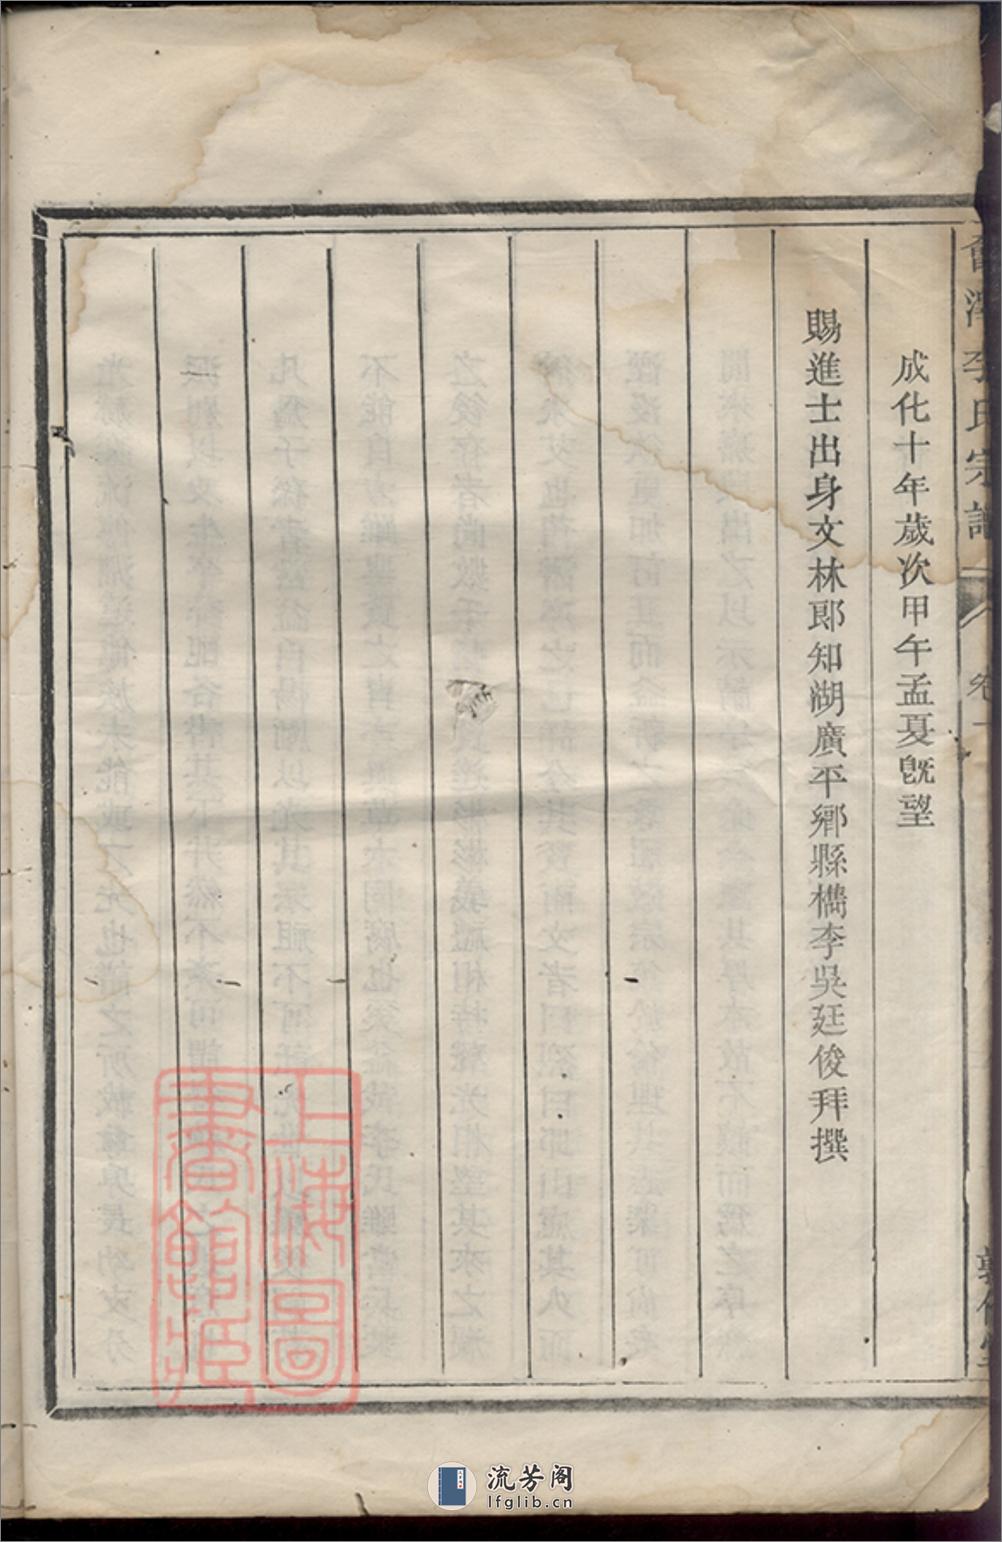 成化十年歲次甲午孟夏既望
賜進士出身文林郎知湖廣平鄉縣檇李吳廷俊拜撰
李氏宗譜
卷一
上海圖
書館藏
流芳阁
lfglib.cn